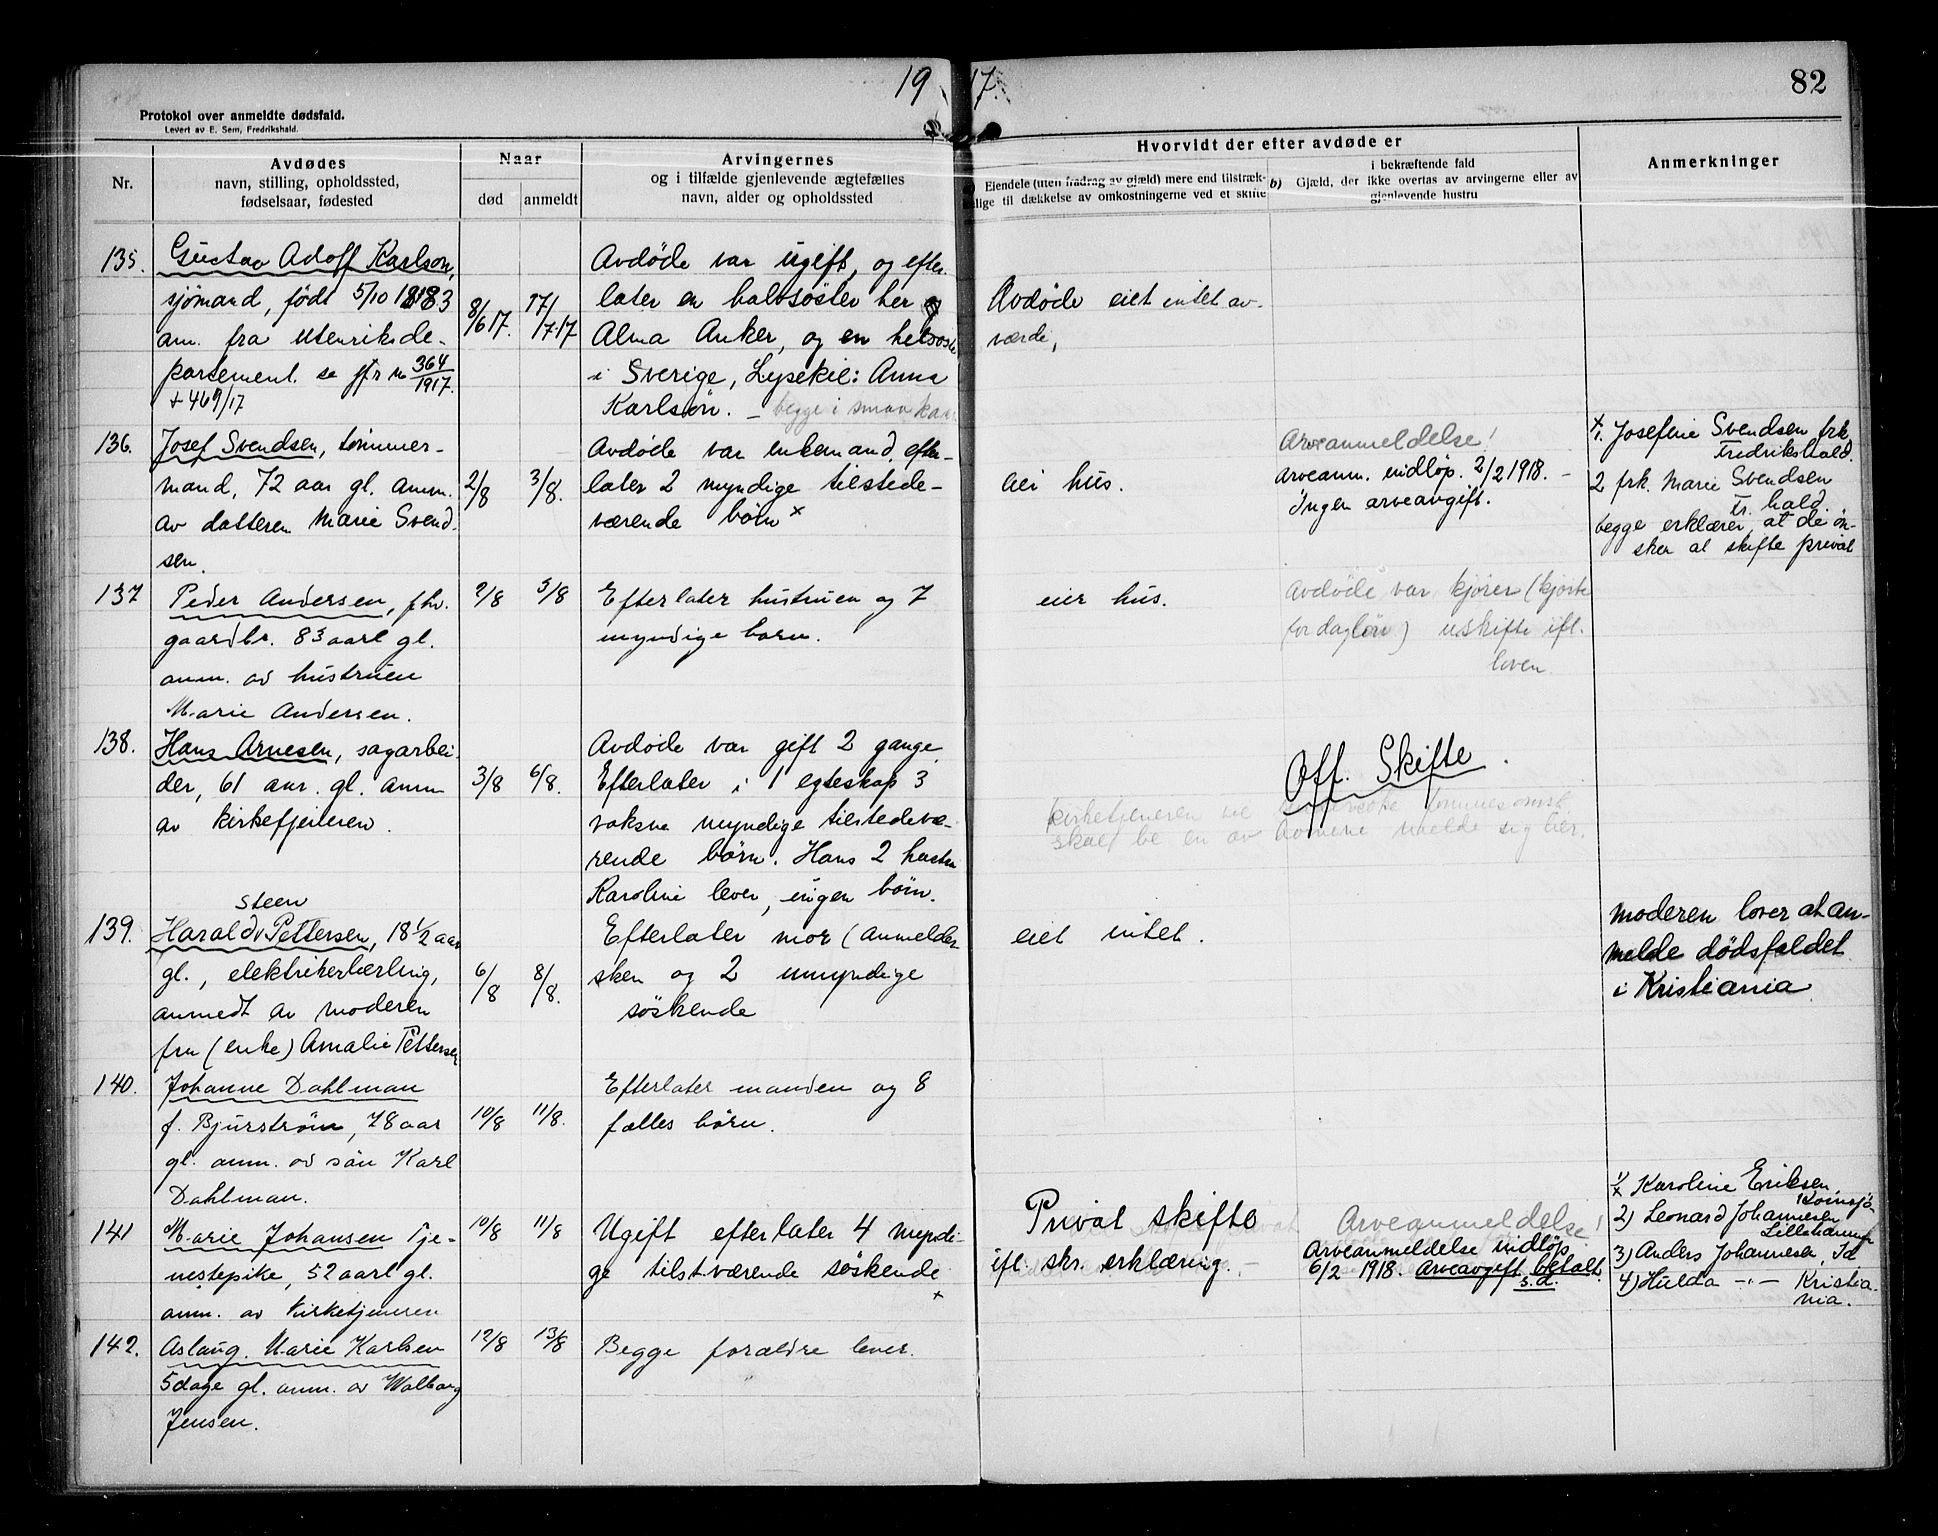 1917.
82
Protokol over anmeldte dødsfald.
Levert av E. Sem, Fredrikshald.
Nr.
Avdødes
navn, stilling, opholdssted,
fødselsaar, fødested
Naar
død
anmeldt
Arvingernes
og i tilfælde gjenlevende ægtefælles
navn, alder og opholdssted
Hvorvidt der efter avdøde er
Eiendele (uten fradrag av gjæld) mere end tilstræk-
lige til dækkelse av omkostningerne ved et skifte
i bekræftende fald
b) Gjæld, der ikke overtas av arvingerne eller av
gjenlevende hustru
Anmerkninger
135.
Gustav Adolf Karlson,
sjømand, født 5/10 1883
am. fra utenriksde-
partement. se jfr no 364/1917.
+ 469/17
8/6 17.
17/7.17
Avdøde var ugift, og efter
later en halvsøster her
Alma Anker, og en helsøste
i Sverige, Lysekil: Anna
Karlson. – begge i smaa kaar
Avdøde eiet intet av
værde,
136.
Josef Svendsen, tømmer-
mand, 72 aar gl. anm.
av datteren Marie Svend-
sen.
2/8
3/8.
Avdøde var enkemand, efter-
later 2 myndige tilstede-
værende børn x
eier hus.
Arveanmeldelse!
Arveanm. indløp. 2/2 1918. –
Ingen arveavgift.
x 1. Josefine Svendsen frk
Fredrikshald.
2 frk. Marie Svendsen
Fr. hald.
begge erklærer, at de øn-
sker at skifte privat
137
Peder Andersen, fhv.
gaardbr. 83 aarl gl.
anm. av hustruen
Marie Andersen.
2/8
3/8
Efterlater hustruen og 7
myndige barn.
eier hus.
Avdøde var kjører (kjørte
for dagløn) uskifte ifl.
loven
138.
Hans Arnesen, sagarbei-
der, 61 aar. gl. anm
av kirketjeneren.
3/8
6/8.
Avdøde var gift 2 gange.
Efterlater i 1 egteskap 3
voksne myndige tilstedevæ-
rende børn. Hans 2 hustru
Karoline lever, ingen børn.
Off. Skifte.
kirketjeneren
skal be en av sønnene melde sig her.
139.
steen
Harald v Pettersen, 18 1/2 aar
gl., elektrikerlærling,
anmedt av moderen
fru (enke) Amalie Pettersen
6/8
8/8.
Efterlater mor (anmelder
sken og 2 umyndige
søskende
eiet intet.
moderen lover at an-
melde dödsfaldet
i Kristiania
140.
Johanne Dahlman
f. Bjurstrøm, 78 aar
gl. anm. av søn Karl
Dahlman.
10/8
11/8.
Efterlater manden og 8
fælles børn.
141
Marie Johansen Tje-
nestepike, 52 aarl gl.
anm. av kirketjeneren
10/8
11/8
Ugift efterlater 4 myndi-
ge tilst.værende søskende
x
Privat skifte
ifl. skr. erklæring. –
Arveanmeldelse!
Arveanmeldelse indløp
6/2 1918. Arveavgift betalt
s.d.
1) x Karoline Eriksen
2) Leonard Johannesen
Lillehammer
3) Anders Johannesen, Id
4) Hulda –"– Kristia-
nia.
142.
Aslaug Marie Karlsen
5 dage gl. anm. av Walborg
Jensen.
12/8
13/8
Begge forældre lever.